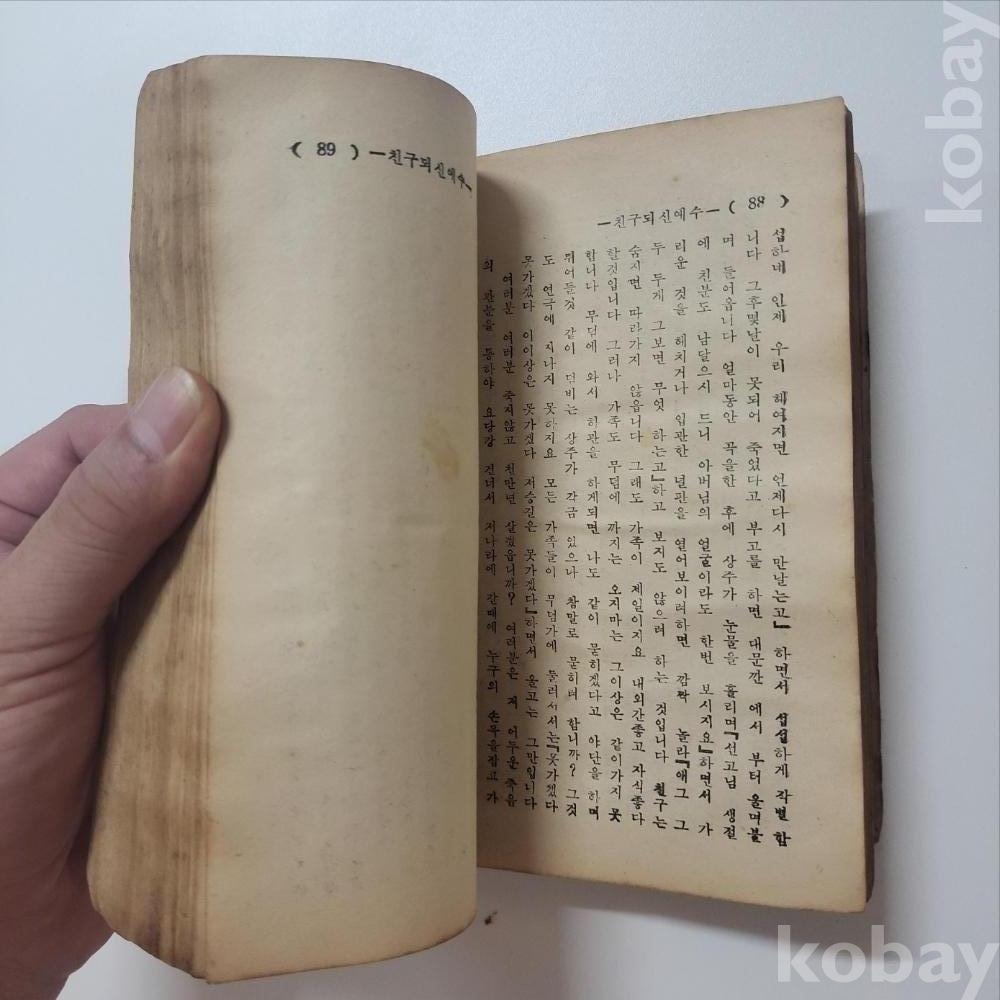 kobay
( 88 )
—친구되신예수—
섭하네 인제 우리 헤여지면 언제다시 만날는고』 하면서 섭섭하게 작별 함
니다 그후몇날이 못되어 죽었다고 부고를 하면 대문깐 에서 부터 울며불
며 들어옵니다 얼마동안 곡을한 후에 상주가 눈물을 흘리며『선고님 생절
에 친분도 남달으시 드니 아버님의 얼굴이라도 한번 보시지요』하면서 가
리운 것을 헤치거나 입관한 널판을 열어보이려하면 깜짝 놀라『애그 그
두 두게 그보면 무엇 하는고』하고 보지도 않으려 하는 것입니다 친구는
숨지면 따라가지 않읍니다 그래도 가족이 제일이지요 내외간좋고 자식좋다
할것입니다 그러나 가족도 무덤에 까지는 오지마는 그이상은 같이가지 못
합니다 무덤에 와서 하관을 하게되면 나도 같이 묻히겠다고 야단을 하며
뛰어들것 같이 덤비는 상주가 각금 있으나 참말로 묻히며 합니까? 그것
도 연극에 지나지 못하지요 모든 가족들이 무덤가에 둘러서서는『못가겠다
못가겠다 이이상은 못가겠다 저승길은 못가겠다』하면서 울고는 그만입니다
여러분 여러분 죽지않고 천만년 살겠읍니까? 여러분은 저 어두운 죽음
의 관문을 통하야 요당강 건너서 저나라에 갈때에 누구의 손목을잡고 가
( 89 )
—친구되신예수—
kobay